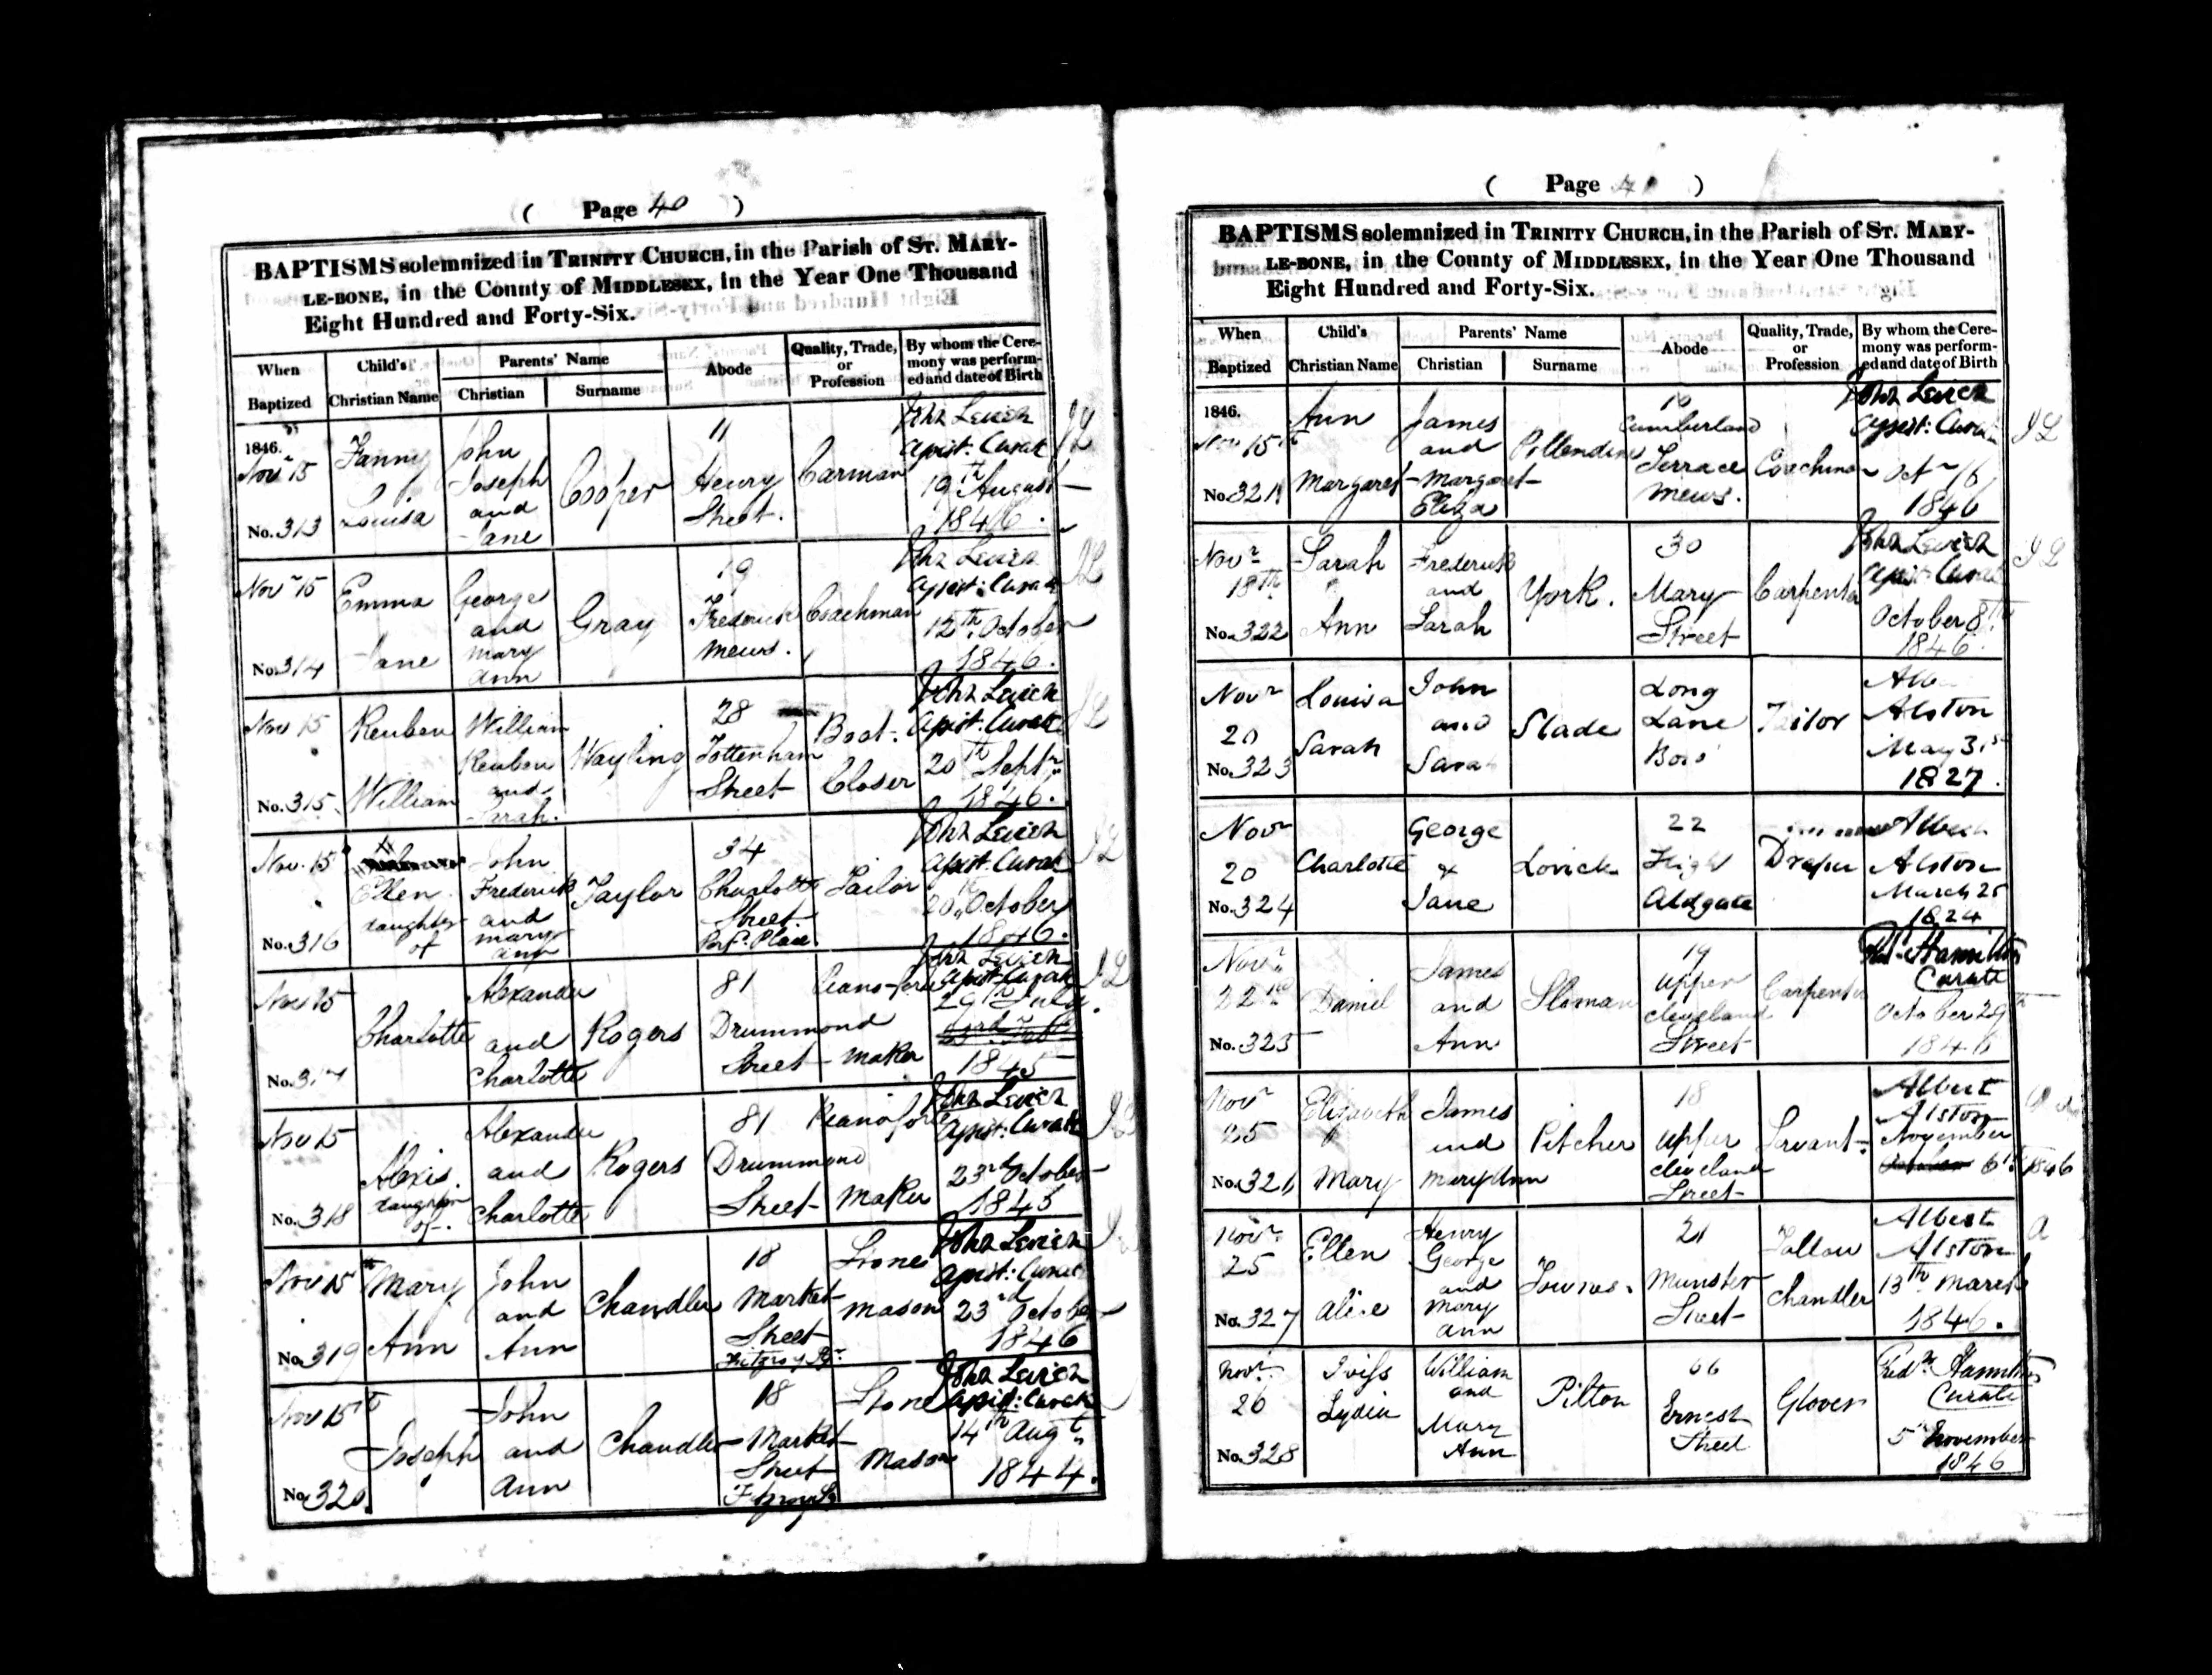 ( Page 40 )
BAPTISMS solemnized in TRINITY CHURCH, in the Parish of ST. MARY-
LE-BONE, in the County of MIDDLESEX, in the Year One Thousand
Eight Hundred and Forty-Six.
When Baptized
Child's Christian Name
Parents' Name
Christian
Surname
Abode
Quality, Trade, or Profession
By whom the Cere-
mony was perform-
ed and date of Birth
1846.
Novr 15
No. 313
Fanny
Louisa
John
Joseph
and
Jane
Cooper
11
Henry
Street.
Carman
John
Assist: Curate
19th August
1846.
Novr 15
No. 314
Emma
Jane
George
and
Mary
Ann
Gray
19
Frederick
Mews.
Coachman
John
Assist: Curate
12th October
1846.
Nov 15
No. 315
Reuben
William
William
Reuben
and
Sarah.
Wayling
28
Tottenham
Street
Boot-
Closer
John
Assist: Curate
20th Septr
1846.
Nov. 15
No. 316
Ellen
daughter
of
John
Frederick
and
Mary
Ann
Taylor
34
Charlotte
Street
Place
Tailor
John
Assist: Curate
20th October
1846.
Nov 15
No. 317
Charlotte
Alexander
and
Charlotte
Rogers
81
Drummond
Street
Piano-forte
Maker
John
Assist: Curate
29th July
1845
Nov 15
No. 318
Alexis.
daughter
of.
Alexander
and
Charlotte
Rogers
81
Drummond
Street
Pianoforte
Maker
John
Assist: Curate
23rd October
1843
Nov 15th
No. 319
Mary
Ann
John
and
Ann
Chandler
18
Market
Street
Fitzroy Sqr.
Stone
Mason
John
Assist: Curate
23rd October
1846
Nov 15th
No. 320.
Joseph
John
and
Ann
Chandler
18
Market
Street
Fitzroy Sq
Stone
Mason
John
Assist: Curate
14th Augt
1844.
( Page 41 )
BAPTISMS solemnized in TRINITY CHURCH, in the Parish of ST. MARY-
LE-BONE, in the County of MIDDLESEX, in the Year One Thousand
Eight Hundred and Forty-Six.
When Baptized
Child's Christian Name
Parents' Name
Christian
Surname
Abode
Quality, Trade, or Profession
By whom the Cere-
mony was perform-
ed and date of Birth
1846.
Novr 15th
No. 321
Ann
Margaret
James
and
Margaret
Eliza
10
Cumberland
Terrace
Mews.
Coachman
John
Assist: Curate
Octr 16
1846
Novr
18th
No. 322
Sarah
Ann
Frederick
and
Sarah
York.
30
Mary
Street
Carpenter
John
Assist: Curate
October 8th
1846.
Novr
20
No. 323
Louisa
Sarah
John
and
Sarah
Slade
Long
Lane
Tailor
Alston
May 31st
1827.
Novr
20
No. 324
Charlotte
George
&
Jane
Lovick
22
High
Aldgate
Draper
Albert
Alston
March 25
1824
Novr
22nd
No. 325
Daniel
James
and
Ann
Sloman
19
Upper
Cleveland
Street
Carpenter
Hamilton
Curate
October 29th
1846
Novr
25
No. 326
Elizabeth
Mary
James
and
Mary Ann
Pitcher
18
Upper
Cleveland
Street
Servant.
Albert
Alston
November
6th 1846
Novr
25
No. 327
Ellen
Alice
Henry
George
and
Mary
Ann
Townes.
21
Munster
Street
Tallow
Chandler
Albert
Alston
13th March
1846.
Novr
26
No. 328
Lydia
William
and
Mary
Ann
Pilton
66
Ernest
Street
Glover
Fredk Hamilton
Curate
5th November
1846